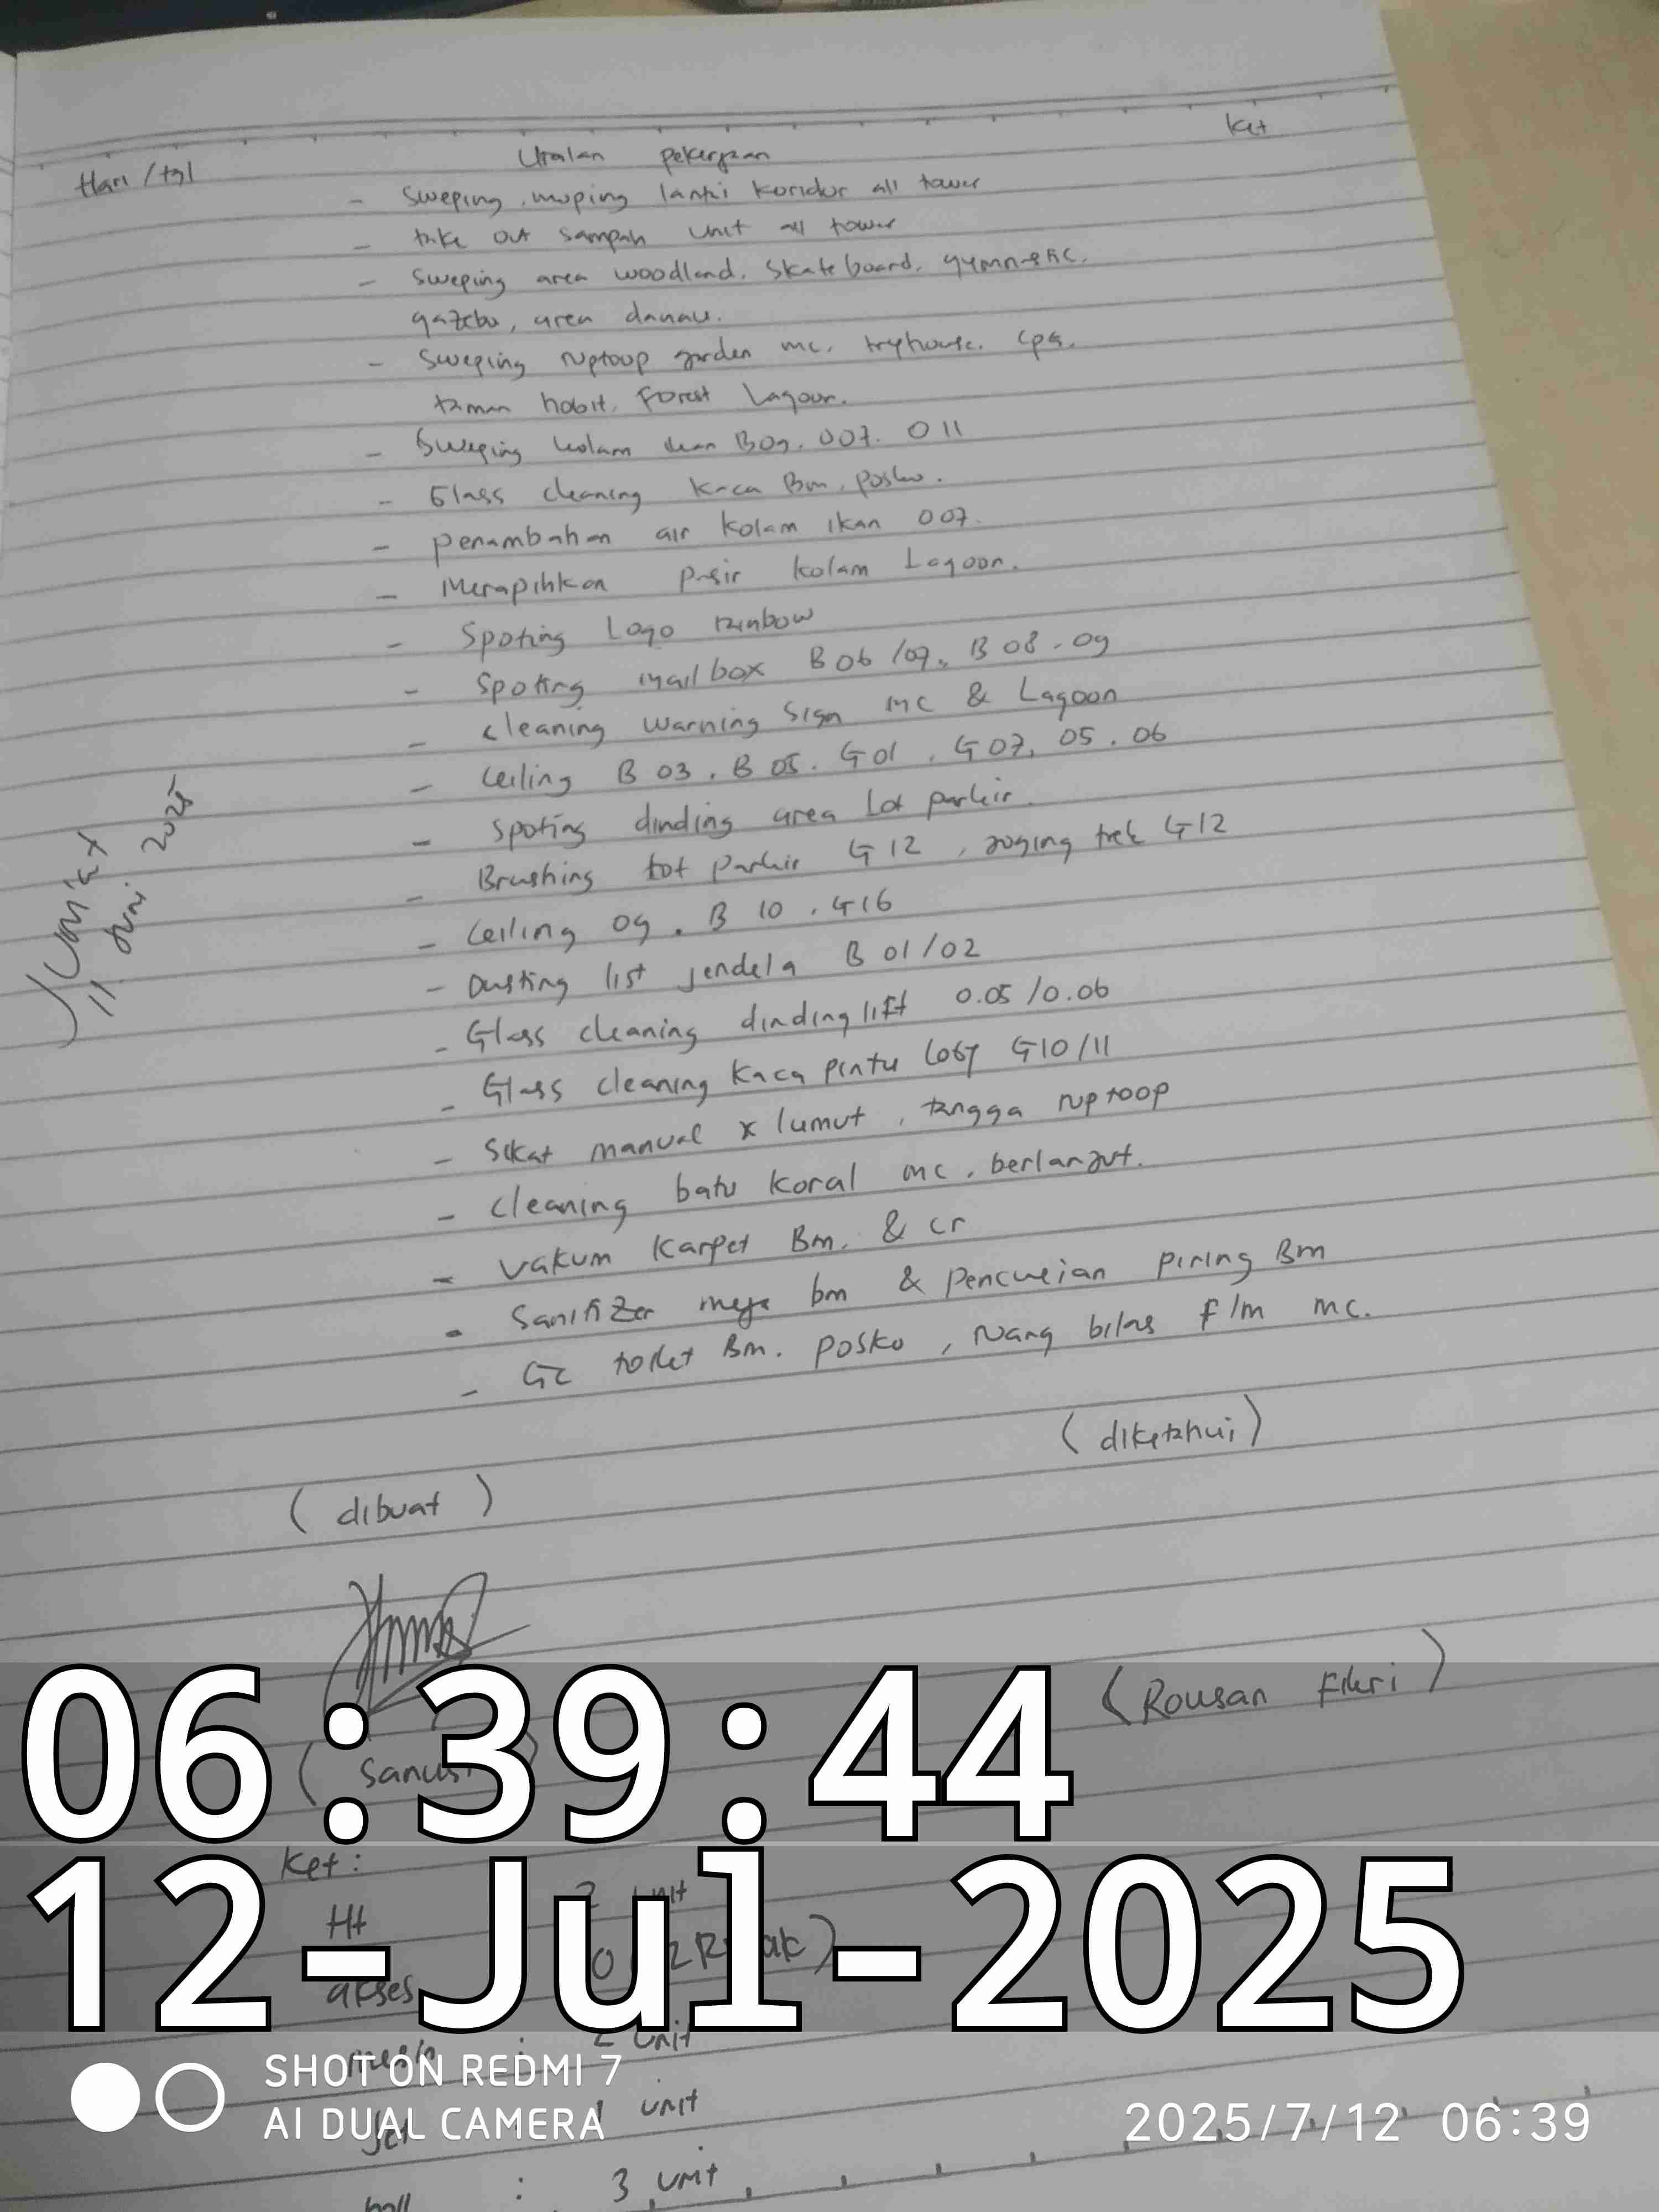 Hari / tgl Uraian pekerjaan ket
- Sweping, moping lantai koridor all tower
- take out sampah unit all tower
- Sweping area woodland. Skate board. gymnastic.
gazebo, area danau.
- Sweping ruptoup garden mc. tryhouse. cpa.
taman hobit. Forest Lagoon.
- Sweping kolam ikan B09. 007. 011
- Glass cleaning kaca Bm. posko.
- penambahan air kolam ikan 007.
- Merapihkan pasir kolam Lagoon.
- Spoting Logo rainbow
- Spoting mailbox B 06 /07. B 08 - 09
- cleaning warning sign mc & Lagoon
- Ceiling B 03. B 05. G01. G 07, 05. 06
- Spoting dinding area Lot parkir.
- Brushing lot parkir G 12, joging trek G12
- Ceiling 09. B 10. G16
- Dusting list jendela B 01/02
- Glass cleaning dinding lift 0.05 /0.06
- Glass cleaning kaca pintu loby G10/11
- Sikat manual x lumut, tangga ruptoop
- cleaning batu koral mc. berlanjut.
- vakum karpet Bm. & cr
- Sanitizer meja bm & pencucian piring Bm
- GC toilet Bm. posko, ruang bilas f/m mc.
Jum'at
11 Juni 2025
(dibuat) (diketahui)
(Sanusi) (Rousan Fikri)
06:39:44
12-Jul-2025
ket :
Ht unit
akses
mesin : 2 unit
Jet 1 unit
: 3 unit
SHOT ON REDMI 7
AI DUAL CAMERA
2025/7/12 06:39